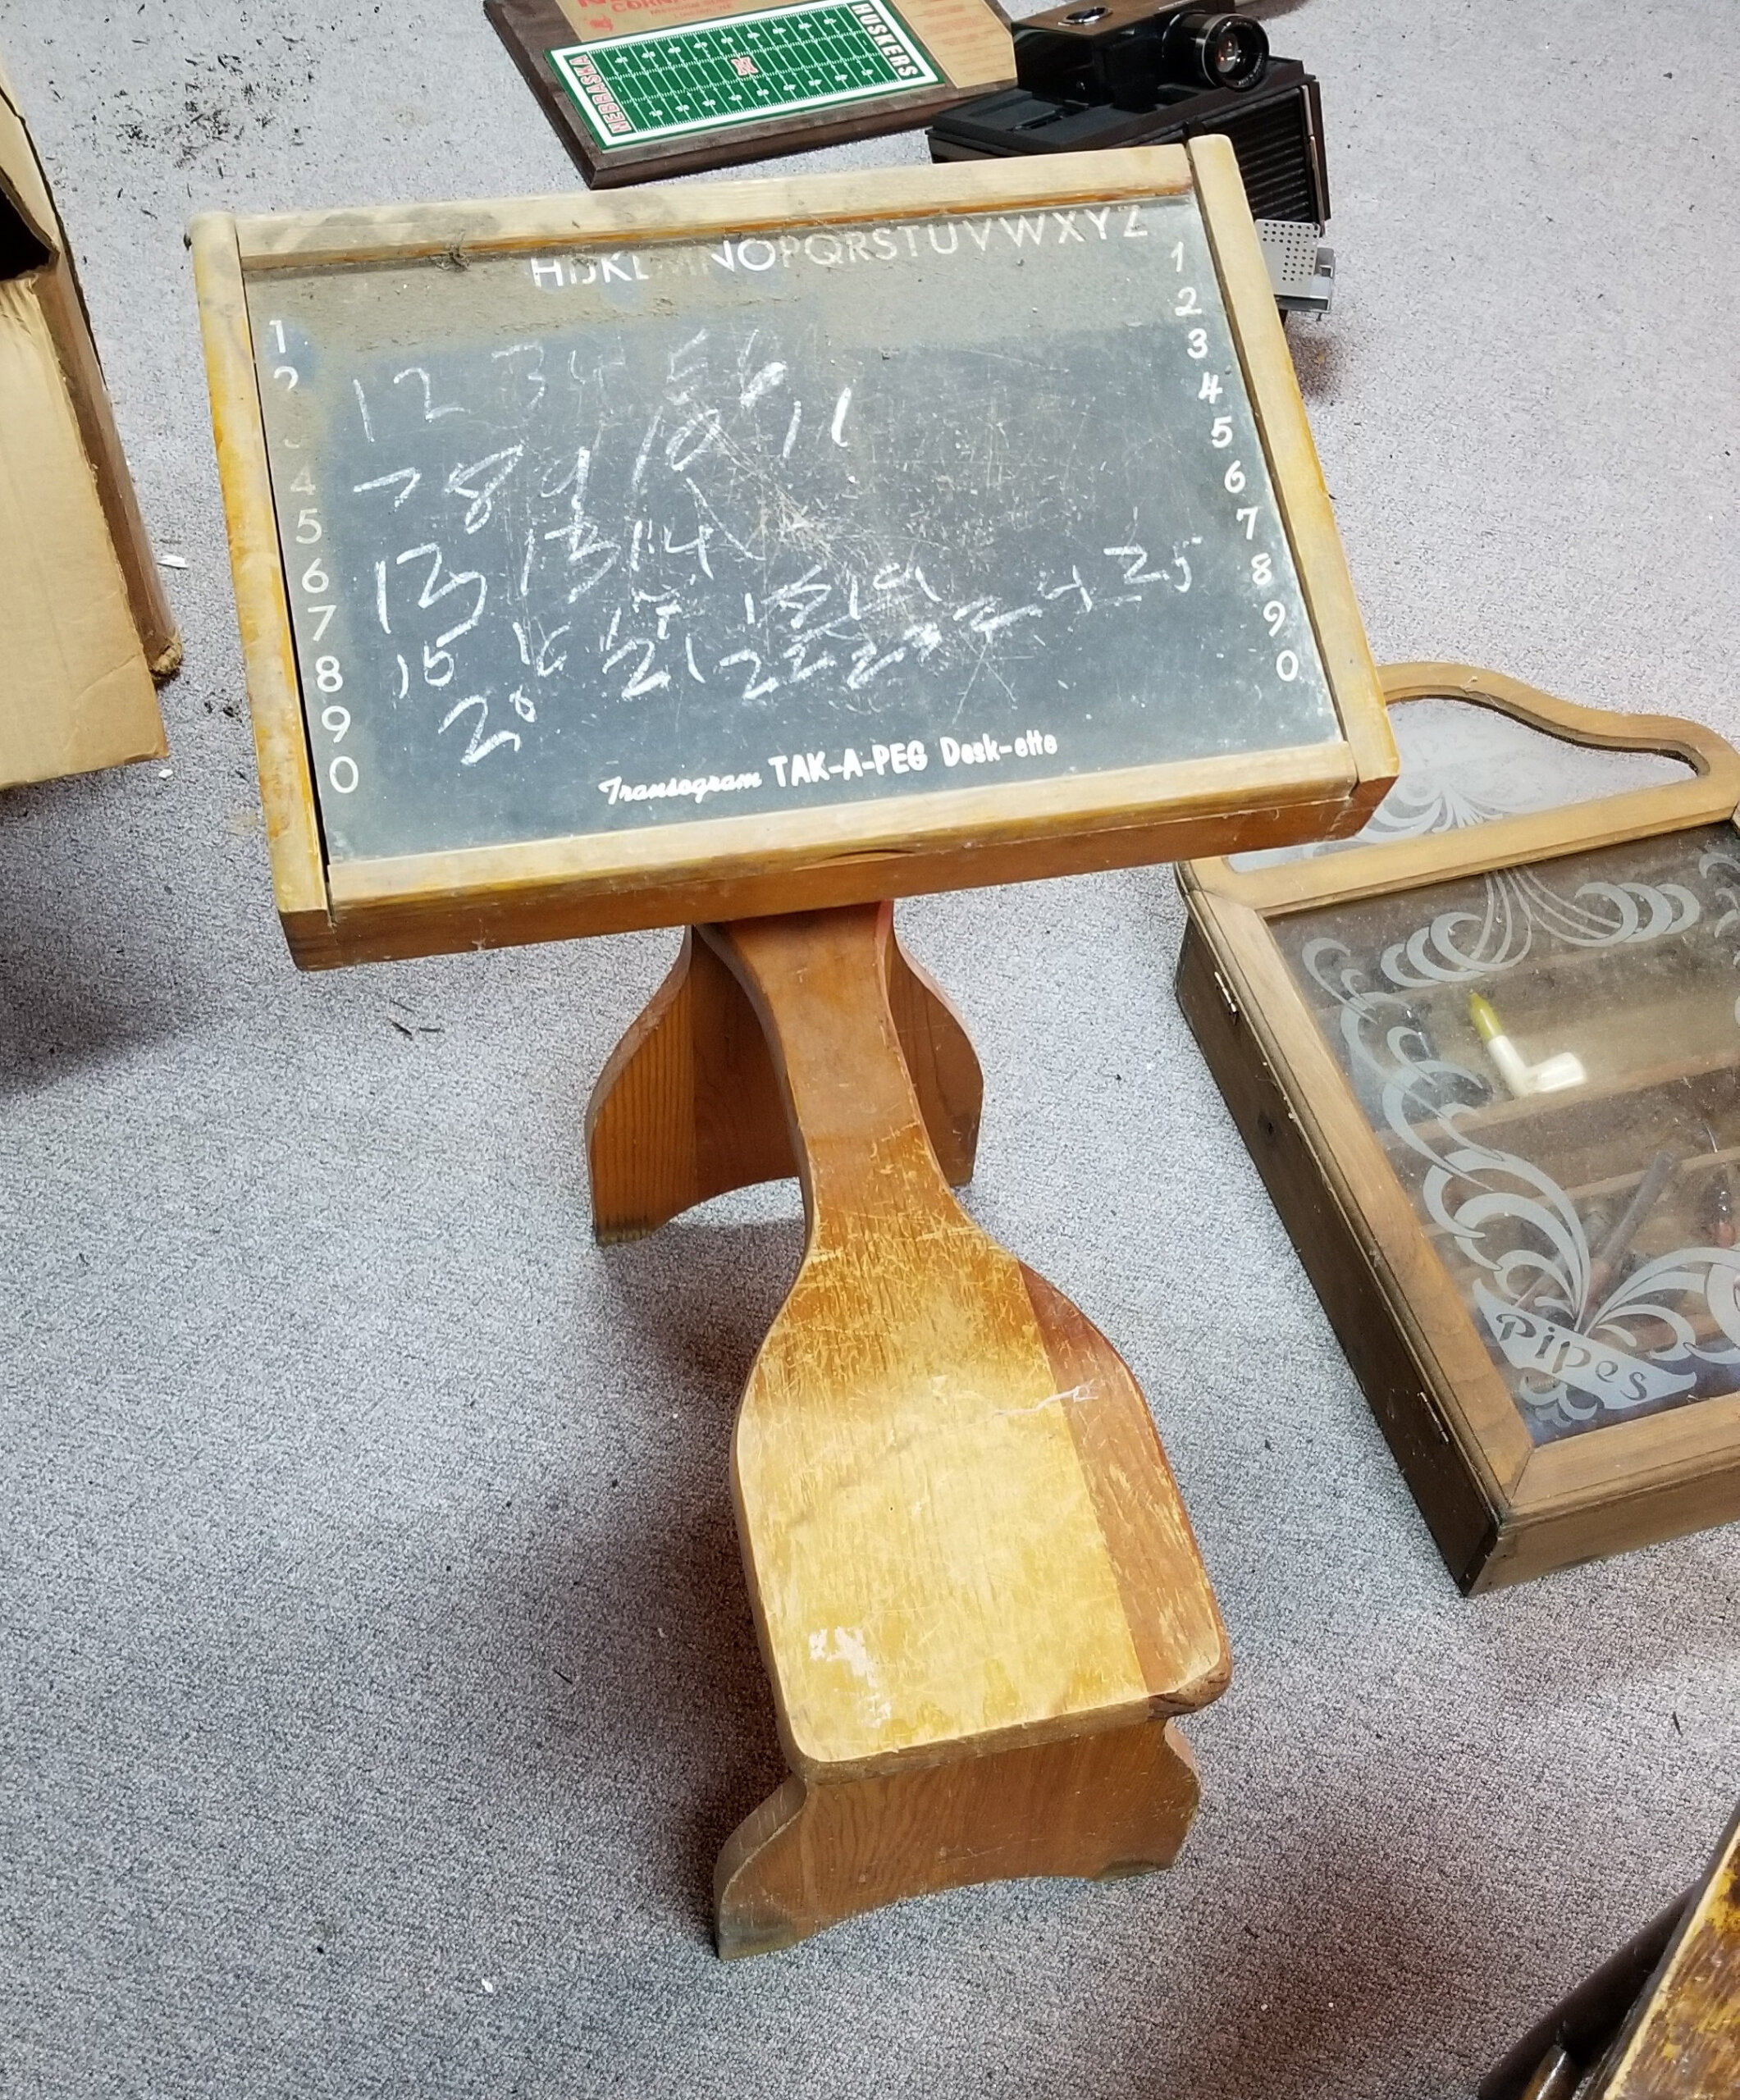 CORN
HUSKERS
NEBRASKA
N
H I J K L M N O P Q R S T U V W X Y Z
1
2
3
4
5
6
7
8
9
0
1
2
4
5
6
7
8
9
0
1 2 3 4 5 6
7 8 9 10 11
12 13 14
15 16 17 18 19
20 21 22 23 24 25
Transogram TAK-A-PEG Desk-ette
Pipes